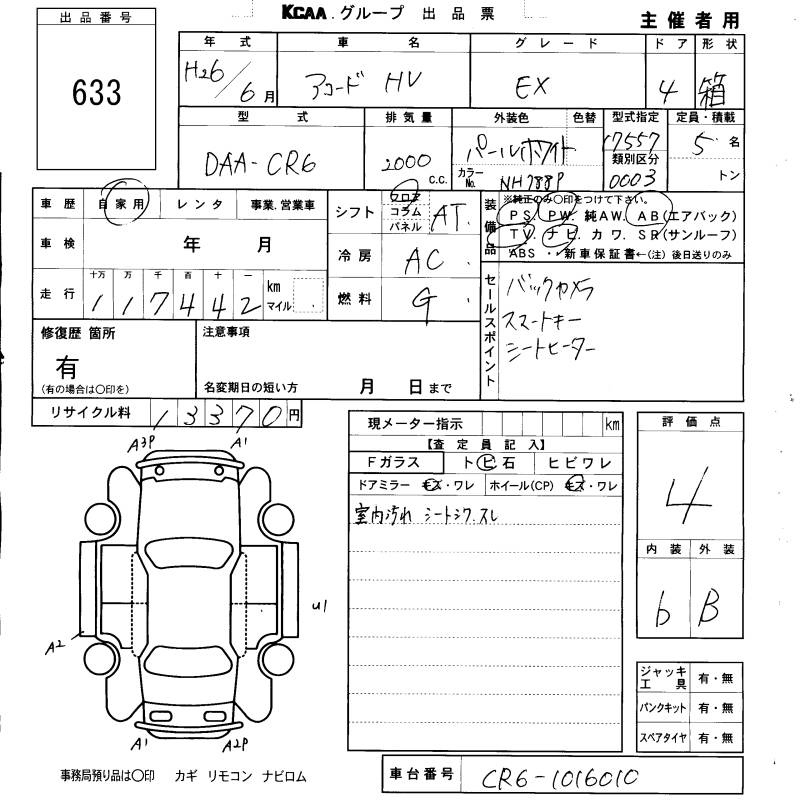 出品番号
633
KCAA.グループ 出品票
主催者用
年式 車名 グレード ドア 形状
H26/6月 アコード HV EX 4 箱
型式 排気量 外装色 色替 型式指定 定員・積載
DAA-CR6 2000 c.c. パールホワイト 17557 5名
カラーNo. NH788P 類別区分 0003 トン
車歴 自家用 レンタ 事業.営業車
シフト フロア コラム パネル AT
装備品 ※純正のみ○印をつけて下さい。
PS. PW. 純AW. AB(エアバック)
TV. ナビ. カワ. SR(サンルーフ)
ABS ・新車保証書←(注)後日送りのみ
車検 年 月
冷房 AC
走行 十万 万 千 百 十 一
117442 km マイル
燃料 G
セールスポイント
バックカメラ
スマートキー
シートヒーター
修復歴 箇所
有
(有の場合は○印を)
注意事項
名変期日の短い方 月 日まで
リサイクル料 13370円
現メーター指示 km
【査定員記入】
Fガラス トビ石 ヒビワレ
ドアミラー キズ・ワレ ホイール(CP) キズ・ワレ
室内汚れ シートシワ.スレ
評価点
4
内装 外装
b B
A3P A1
U1
A2
A1 A2P
ジャッキ工具 有・無
パンクキット 有・無
スペアタイヤ 有・無
事務局預り品は○印 カギ リモコン ナビロム
車台番号 CR6-1016010